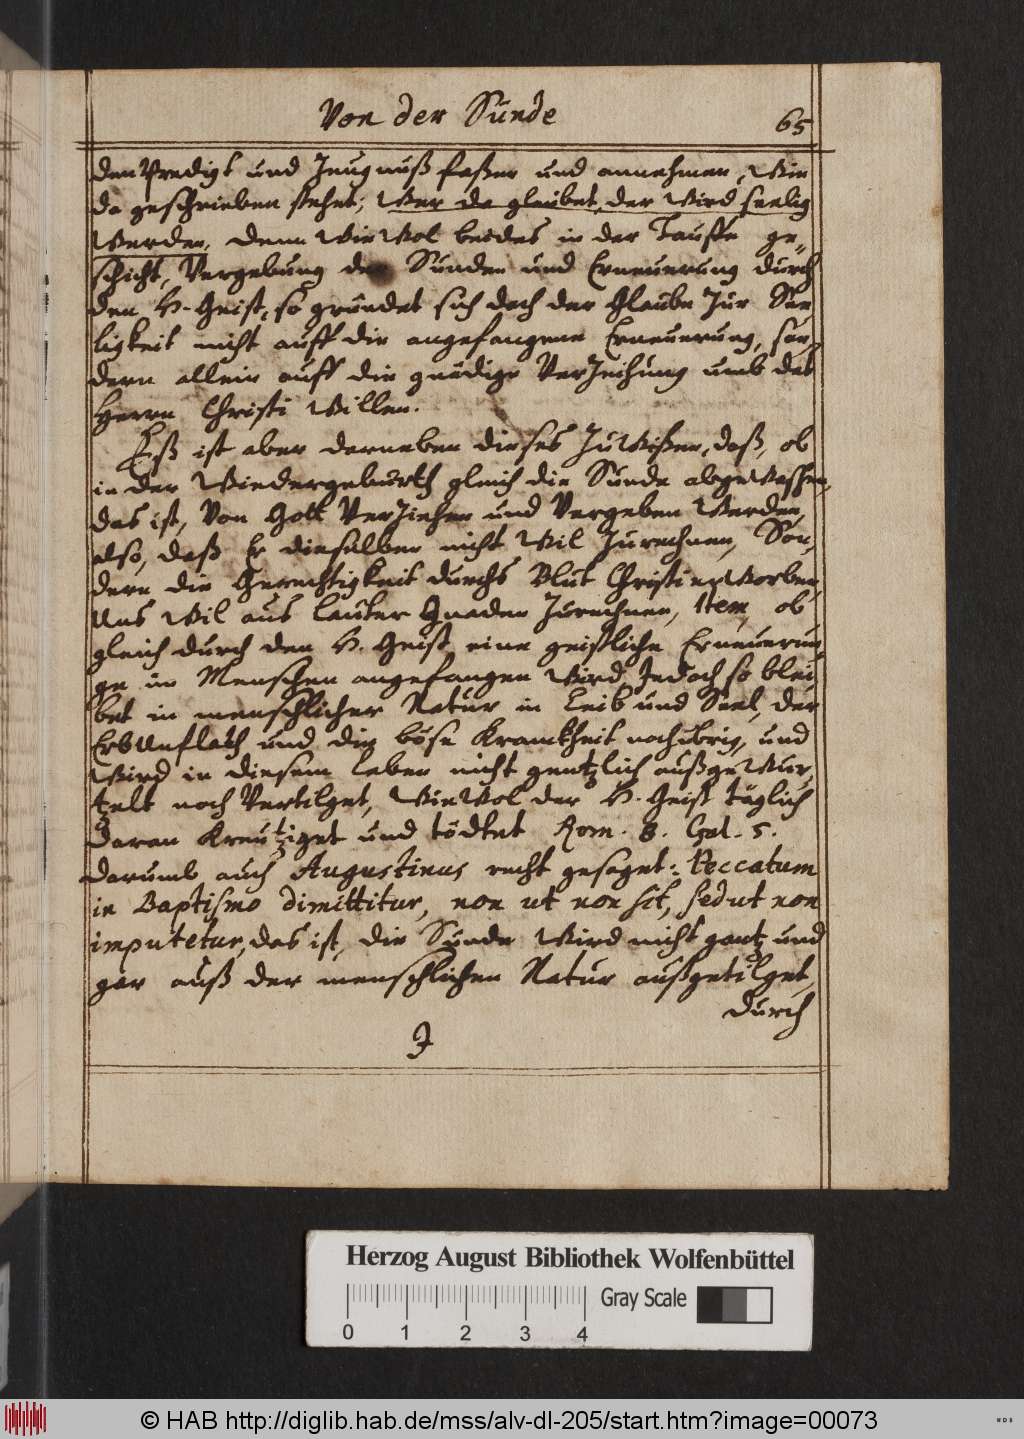 Von der Sünde
65
den Predigt und Zeugnuß faßen und annehmen, Wie
da geschrieben stehet; Wer da gleubet, der Wird seelig
Werden, denn WieWol beides in der Tauffe ge-
schicht, Vergebung der Sünden und Erneuerung durch
den H. Geist, so gründet sich doch der Glaube Zur See
ligkeit nicht auff die angefangene Erneuerung, son-
dern allein auff die gnedige VerZeihung umb des
Herrn Christi Willen.
Eß ist aber darneben dieses ZuWißen, daß, ob
in der Wiedergeburth gleich die Sünde abgeWasschen,
das ist, Von Gott VerZiehen und Vergeben Werden,
also, daß Er dieselben nicht Wil Zurechnen, Son-
dern die Gerechtigkeit durchs Blut Christi erWorben,
Uns Wil aus lauter Gnaden Zurechnen, Item, ob
gleich durch den H. Geist eine geistliche Erneuerun
ge im Menschen angefangen Wird, Jedoch so blei
bet in menschlicher Natur in Leib und Seel, der
ErbUnflath und die böse Kranckheit noch übrig, und
Wird in diesem leben nicht gentzlich außgeWur-
tzelt noch Vertilget, WieWol der H. Geist täglich
daran Kreutziget und tödtet Rom. 8. Gal. 5.
darumb auch Augustinus recht gesaget: Peccatum
in Baptismo dimittitur, non ut non sit, sed ut non
imputetur, das ist, die Sünde Wird nicht gantz und
gar auß der menschlichen Natur außgetilget,
durch
J
Herzog August Bibliothek Wolfenbüttel
Gray Scale
0 1 2 3 4
© HAB http://diglib.hab.de/mss/alv-dl-205/start.htm?image=00073